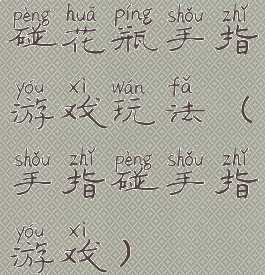 pèng huā píng shǒu zhǐ
碰花瓶手指
yóu xì wán fǎ
游戏玩法（
shǒu zhǐ pèng shǒu zhǐ
手指碰手指
yóu xì
游戏）